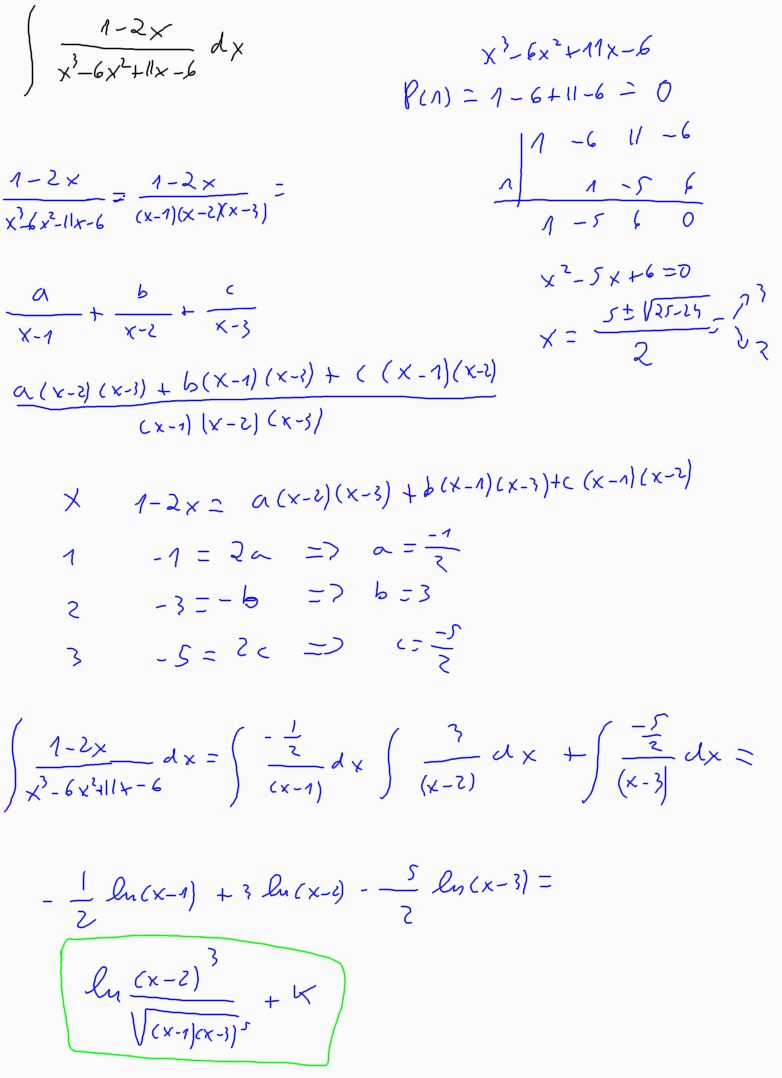 ∫ (1-2x)/(x³-6x²+11x-6) dx
x³-6x²+11x-6
P(1) = 1-6+11-6 = 0
1 -6 11 -6
1 | 1 -5 6
1 -5 6 0
x²-5x+6=0
x = (5±√(25-24))/2 = 3, 2
(1-2x)/(x³-6x²-11x-6) = (1-2x)/((x-1)(x-2)(x-3)) =
a/(x-1) + b/(x-2) + c/(x-3)
(a(x-2)(x-3) + b(x-1)(x-3) + c(x-1)(x-2))/((x-1)(x-2)(x-3))
x 1-2x = a(x-2)(x-3)+b(x-1)(x-3)+c(x-1)(x-2)
1 -1 = 2a => a = -1/2
2 -3 = -b => b = 3
3 -5 = 2c => c = -5/2
∫ (1-2x)/(x³-6x²+11x-6) dx = ∫ (-1/2)/(x-1) dx ∫ 3/(x-2) dx + ∫ (-5/2)/(x-3) dx =
-1/2 ln(x-1) + 3 ln(x-2) - 5/2 ln(x-3) =
ln (x-2)³/√((x-1)(x-3)⁵) + K